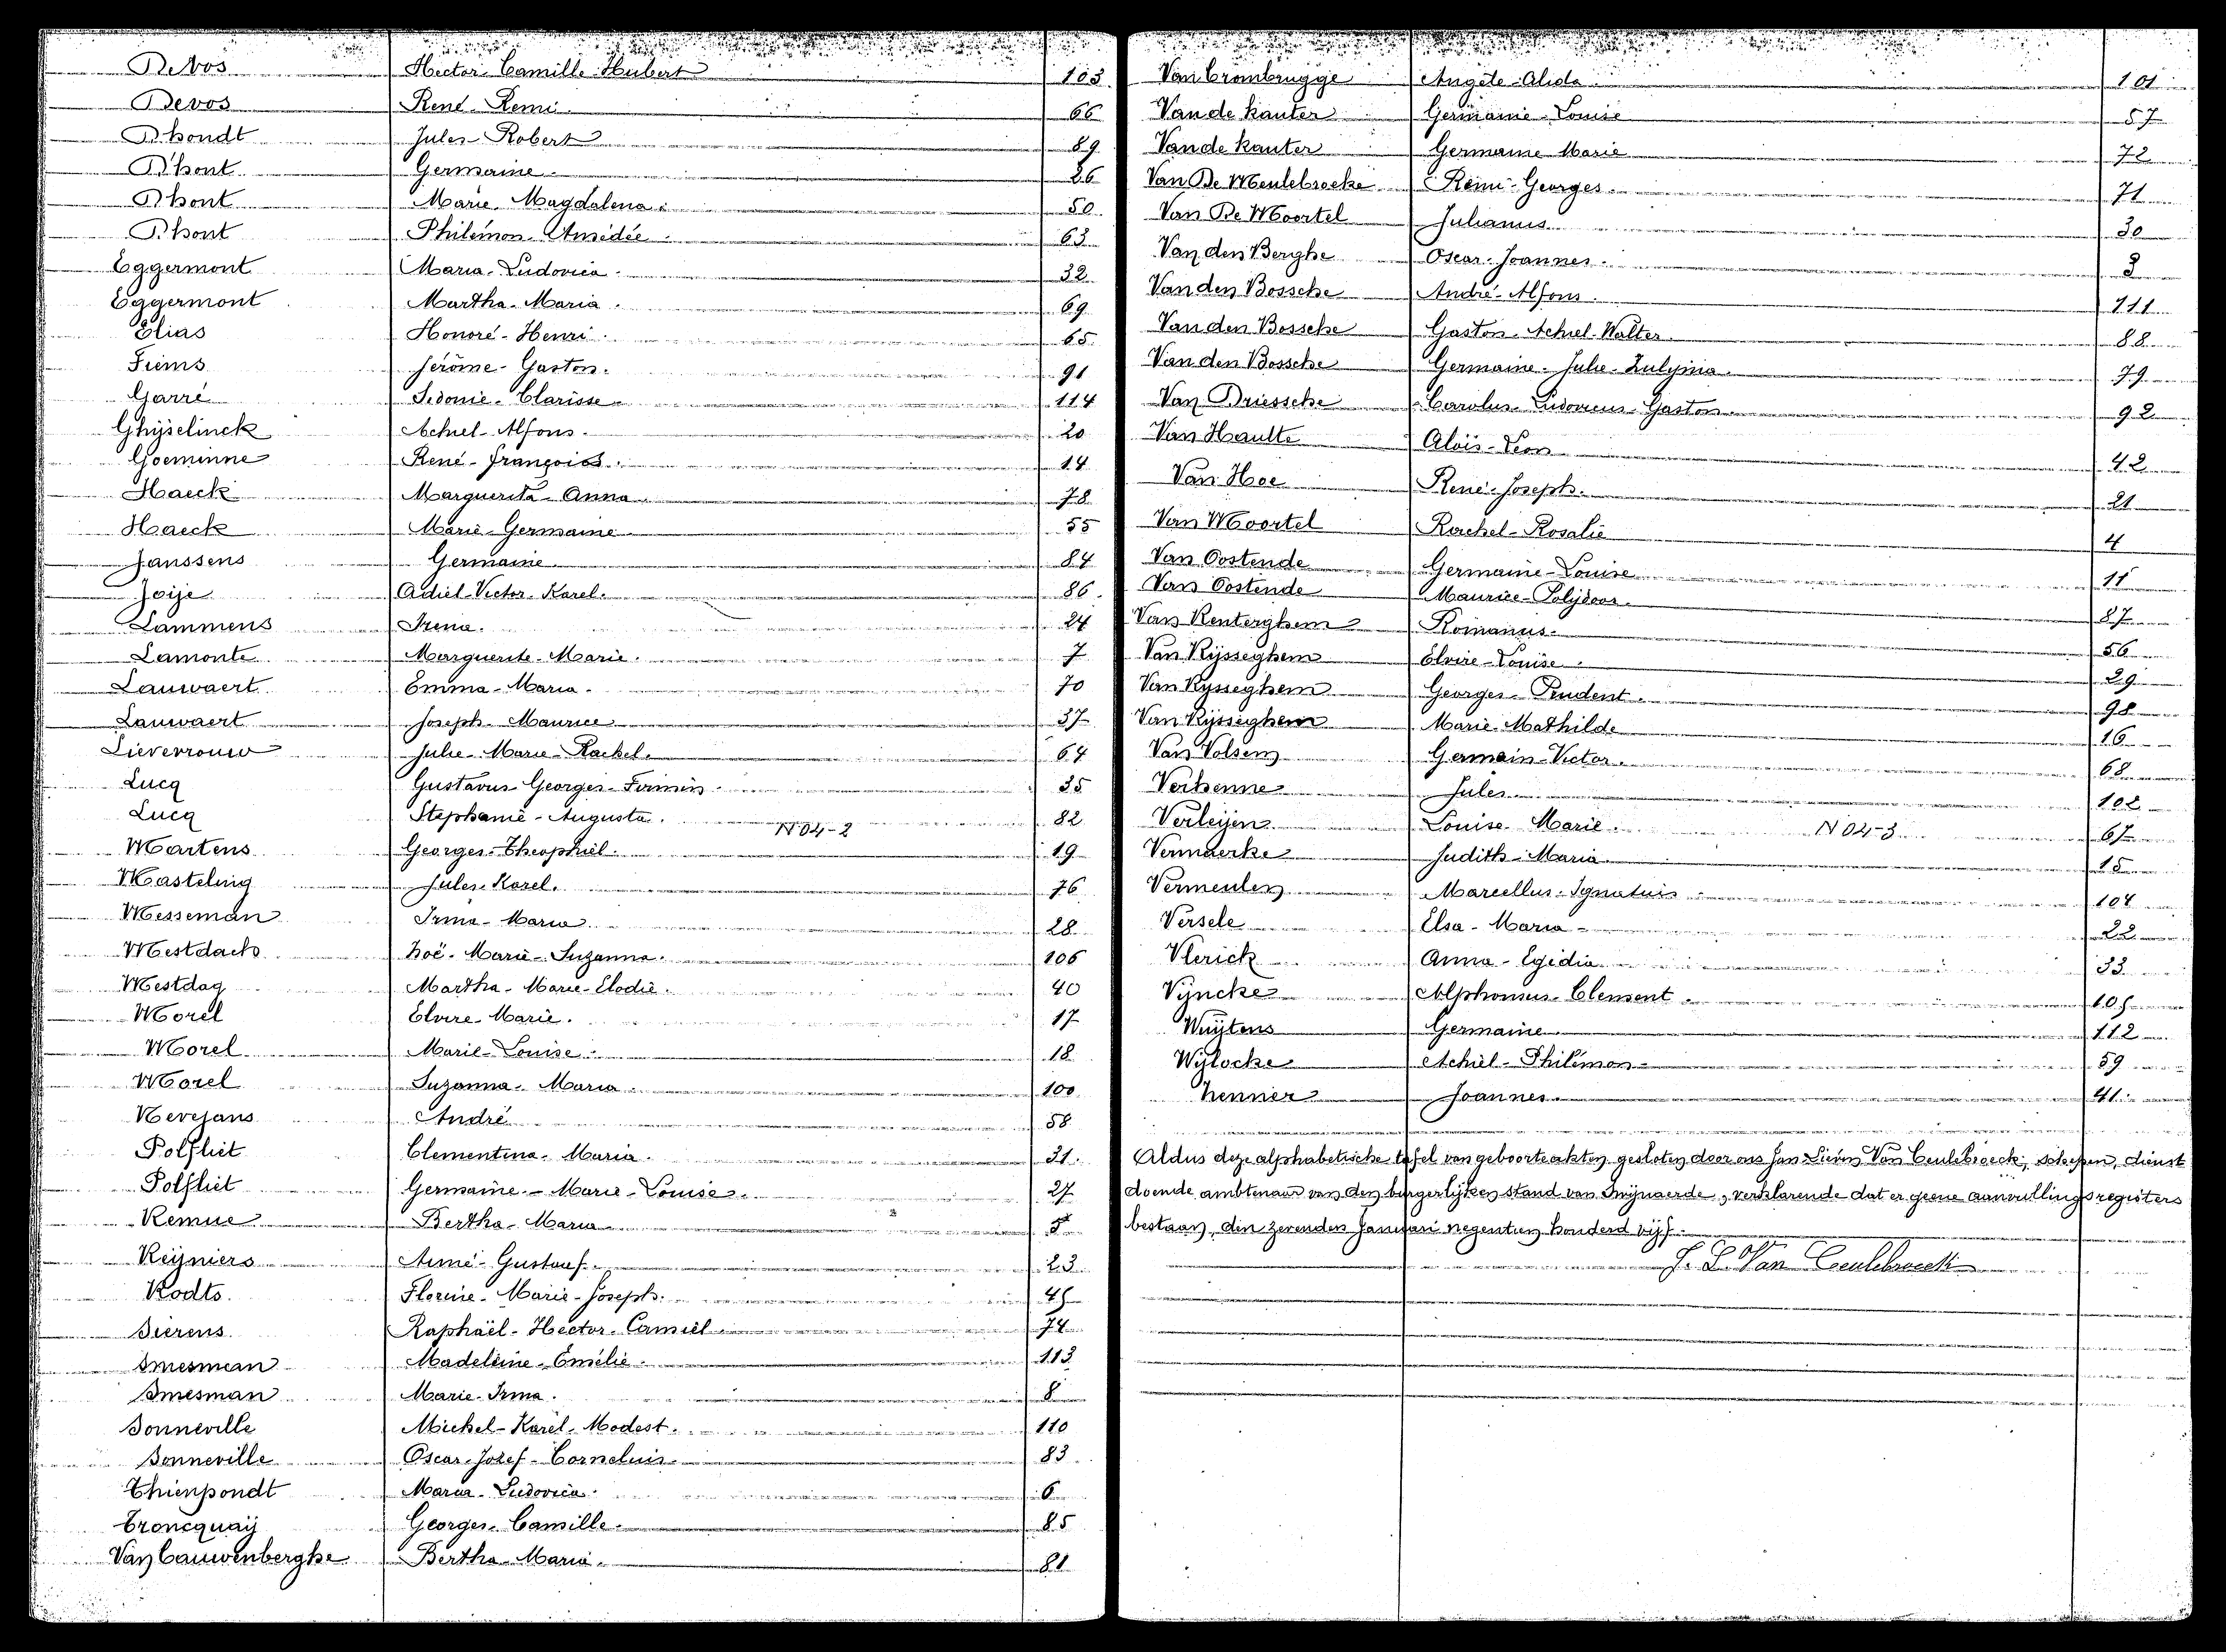 De Vos Hector Camille Hubert 103
Devos René Remi 66
D'hondt Jules Robert 89
D'hont Germaine 26
Dhont Marie Magdalena 50
D'hont Philémon Amédée 63
Eggermont Maria Ludovica 32
Eggermont Martha Maria 69
Elias Honoré Henri 65
Fiems Jérôme Gaston 91
Garré Sidonie Clarisse 114
Ghijselinck Achiel Alfons 20
Goeminne René François 14
Haeck Marguerita Anna 78
Haeck Marie Germaine 55
Janssens Germaine 84
Joije Adiel Victor Karel 86
Lammens Irena 24
Lamonte Marguerite Marie 7
Lauwaert Emma Maria 70
Lauwaert Joseph Maurice 37
Lieverrouw Julie Marie Rachel 64
Lucq Gustavus Georges Firmin 35
Lucq Stephanie Augusta 82
N04-2
Martens Georges Theophiel 19
Masteling Jules Karel 76
Messeman Irma Maria 28
Mestdach Zoë Marie Suzanna 106
Mestdag Martha Marie Elodie 40
Morel Elvire Marie 17
Morel Marie Louise 18
Morel Suzanna Maria 100
Nevejans André 58
Polfliet Clementina Maria 31
Polfliet Germaine Marie Louise 27
Remue Bertha Maria 5
Reijniers Aimé Gustaaf 23
Rodts Florine Marie Joseph 45
Sierens Raphaël Hector Camiel 74
Smesman Madeleine Emélie 113
Smesman Marie Irma 8
Sonneville Michel Karel Modest 110
Sonneville Oscar Jozef Cornelius 83
Thienpondt Maria Ludovica 6
Troncquaij Georges Camille 85
Van Cauwenberghe Bertha Maria 81
Van Crombrugge Angèle Alida 101
Van de kauter Germaine Louise 57
Van de kauter Germaine Marie 72
Van De Meulebroeke Rémi Georges 71
Van De Moortel Julianus 30
Van den Berghe Oscar Joannes 3
Van den Bossche André Alfons 111
Van den Bossche Gaston Achiel Walter 88
Van den Bossche Germaine Julie Zulyma 79
Van Driessche Carolus Ludovicus Gaston 92
Van Haulte Aloïs Leon 42
Van Hoe René Joseph 21
Van Moortel Rachel Rosalie 4
Van Oostende Germaine Louise 11
Van Oostende Maurice Polijdoor 87
Van Renterghem Romanus 56
Van Rijsseghem Elvire Louise 29
Van Rysseghem Georges Prudent 98
Van Rijsseghem Marie Mathilde 16
Van Volsem Germain Victor 68
Verhenne Jules 102
Verleijen Louise Marie 67
N04-3
Vermaerke Judith Maria 15
Vermeulen Marcellus Ignatius 104
Versele Elsa Maria 22
Vlerick Anna Egidia 33
Vijncke Alphonsus Clement 105
Wuijtens Germaine 112
Wijlocke Achiel Philémon 59
Zenner Joannes 41
Aldus deze alphabetische tafel van geboorteakten gesloten door ons Jan Lievin Van Ceulebroeck, schepen, dienst
doende ambtenaar van den burgerlijken stand van Snijnaerde, verklarende dat er geene aanvullingsregisters
bestaan, den zevenden Januari negentien honderd vijf.
J. L. Van Ceulebroeck